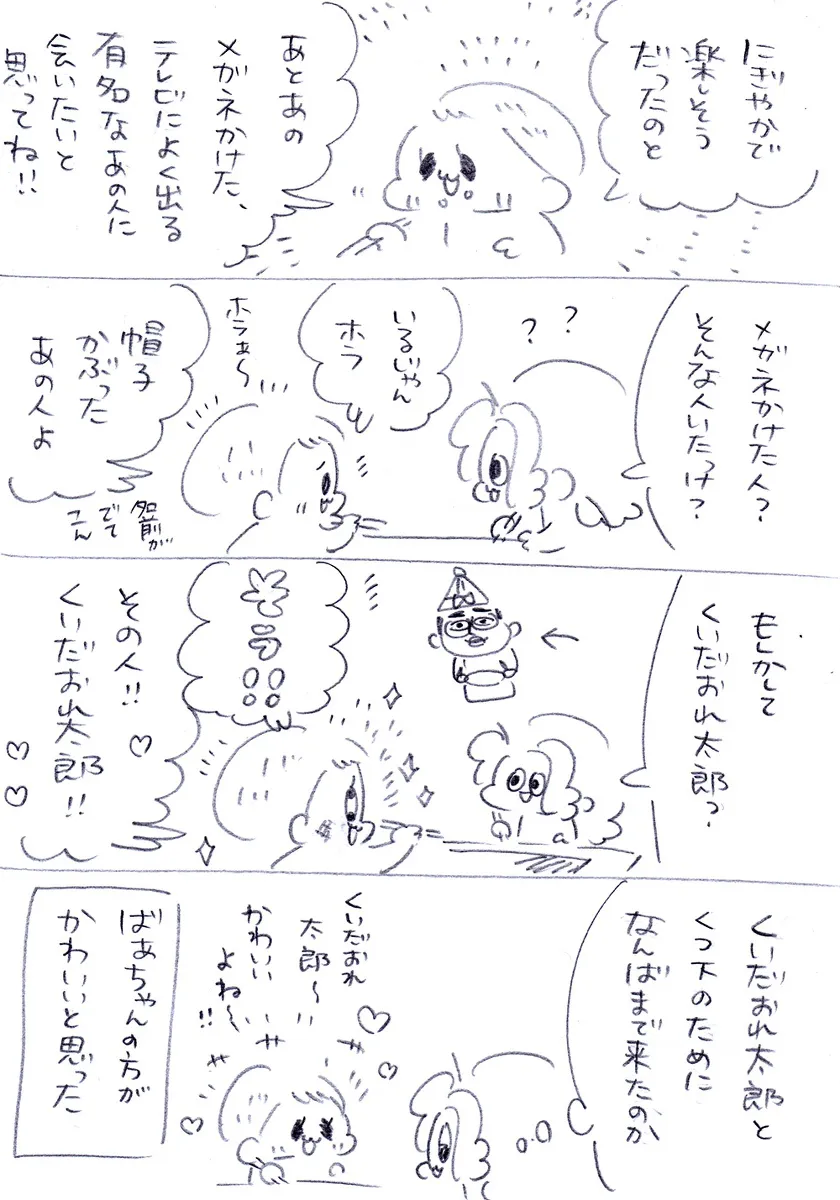 にぎやかで
楽しそう
だったのと
あとあの
メガネかけた、
テレビによく出る
有名なあの人に
会いたいと
思ってね!!
メガネかけた人?
そんな人いたっけ?
? ?
いるじゃん
ホラ
ホラぁ〜
帽子
かぶった
あの人よ
名前が
でて
こん
もしかして
くいだおれ太郎?
そ
う
!!
その人!!
くいだおれ太郎!!
くいだおれ太郎と
くつ下のために
なんばまで来たのか
くいだおれ
太郎〜
かわいい
よね〜
!!
ばあちゃんの方が
かわいいと思った